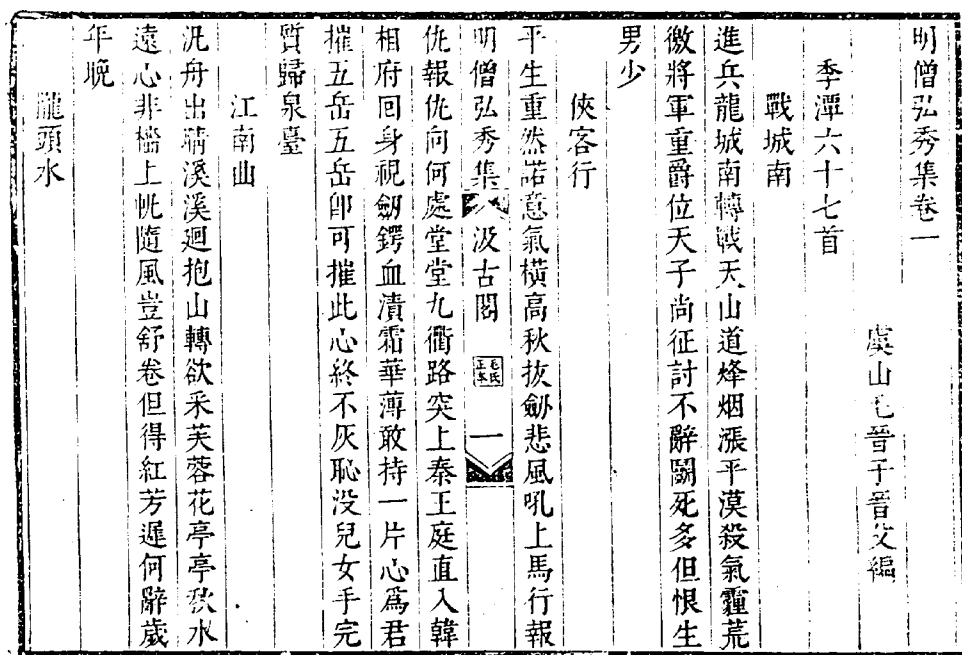 明僧弘秀集卷一
虞山毛晉子晉父編
季潭六十七首
戰城南
進兵龍城南轉戰天山道烽烟漲平漠殺氣霾荒
徼將軍重爵位天子尚征討不辭鬭死多但恨生
男少
俠客行
平生重然諾意氣橫高秋抜劒悲風吼上馬行報
明僧弘秀集 汲古閣 毛氏正本 一
仇報仇向何處堂堂九衢路突上秦王庭直入韓
相府回身視劒鍔血漬霜華薄敢持一片心爲君
摧五岳五岳卽可摧此心終不灰恥没兒女手完
質歸泉臺
江南曲
汎舟出晴溪溪廻抱山轉欲采芙蓉花亭亭秋水
遠心非檣上帆隨風豈舒卷但得紅芳遲何辭歲
年晚
隴頭水